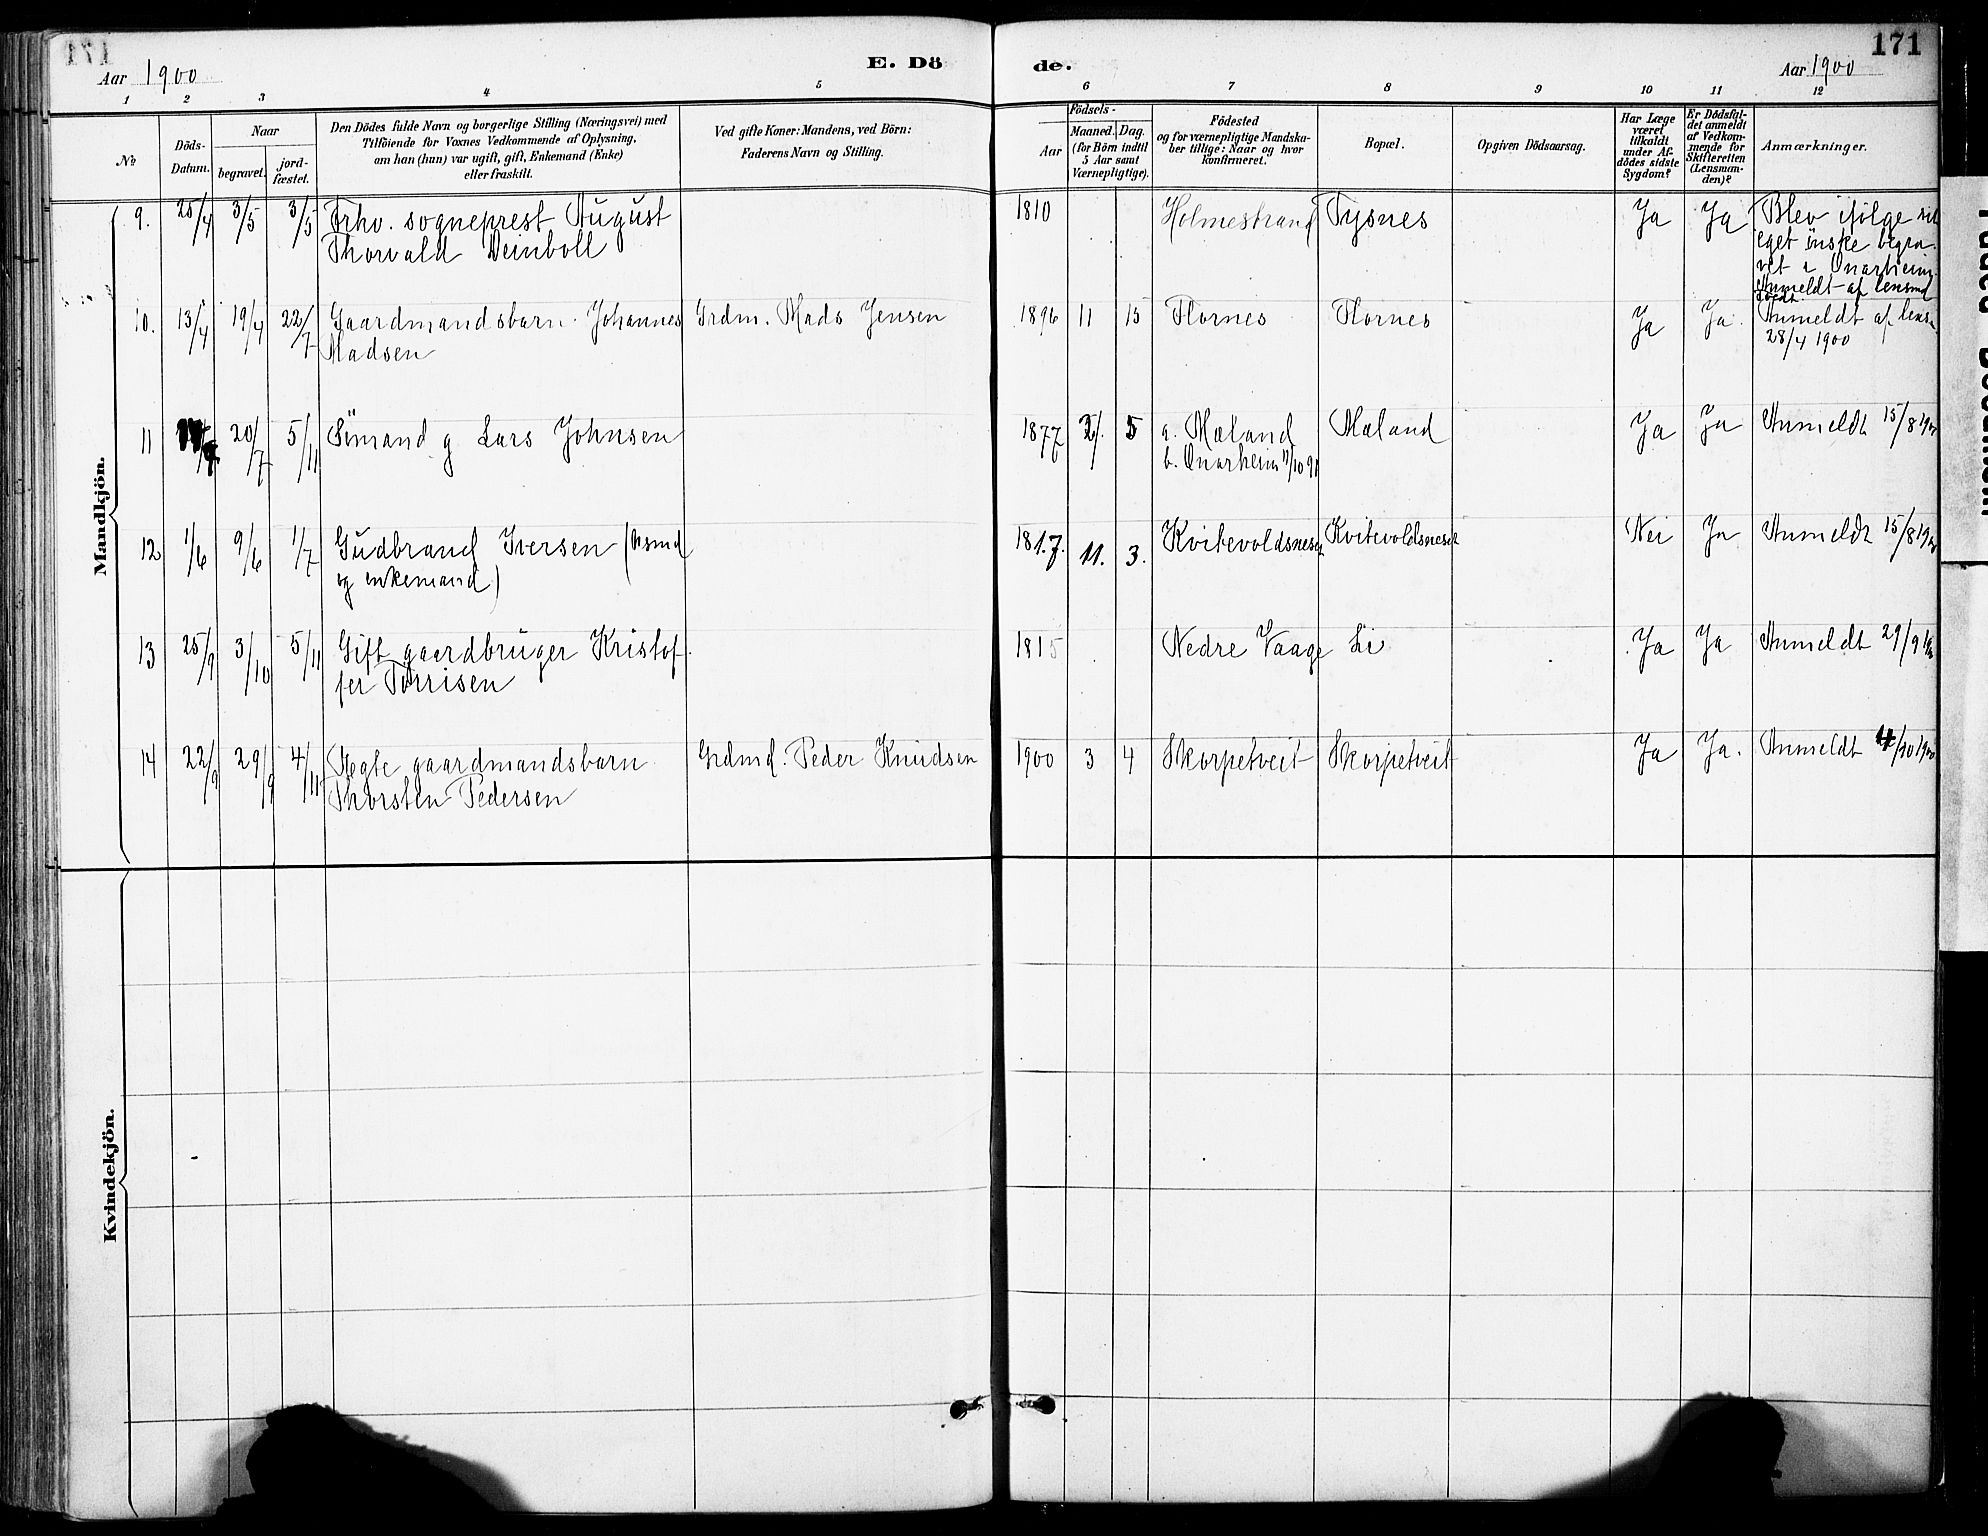 171
Aar 1900
E. Dö
de.
Aar 1900
171
1 2 3 4 5 6 7 8 9 10 11 12
No
Döds-
Datum.
Naar
begravet.
jord-
fæstet.
Den Dödes fulde Navn og borgerlige Stilling (Næringsvei) med
Tilföiende for Voxnes Vedkommende af Oplysning,
am han (hun) var ugift, gift, Enkemand (Enke)
eller fraskilt.
Ved gifte Koner: Mandens, ved Börn:
Faderens Navn og Stilling.
Födsels-
Aar
Maaned. Dag.
(for Börn indtil
5 Aar samt
Værnepligtige).
Födested
og for værnepligtige Mandska-
ber tillige: Naar og hvor
konfirmeret.
Bopæl.
Opgiven Dödsaarsag.
Har Læge
været
tilkaldt
under Af-
dödes sidste
Sygdom?
Er Dödsfal-
det anmeldt
af Vedkom-
mende for
Skifteretten
(Lensman-
den)?
Anmærkninger.
Mandkjön.
9. 25/4 3/5 3/5 Frhv. sogneprest August
Thorvald Deinboll
1810 Holmestrand Tysnes Ja Ja Blev ifölge sit
eget önske begra-
vet i Onarheim.
Anmeldt af lensmd
10. 13/4 19/4 22/7 Gaardmandsbarn Johannes
Madsen
Grdm. Mads Jensen 1896 11 15 Flornes Flornes Ja Ja. Anmeldt af lens.
28/4 1900
11 20/7 5/11 Sömand g Lars Johnsen 1877 2/. 5 a. Mæland
b. Onarheim 11/10 91
Mæland Ja Ja Anmeldt 15/8 1900
12 1/6 9/6 1/7 Gudbrand Iversen (husmd
og enkemand)
1817. 11. 3. Kvitevoldsneset Kvitevoldsneset Nei Ja Anmeldt 15/8 1900
13 25/9 3/10 5/11 Gift gaardbruger Kristof-
fer Torrisen
1815 Nedre Vaage Li Ja Ja Anmeldt 29/9 1900
14 22/9 29/9 4/11 Ægte gaardmandsbarn
Thorsten Pedersen
Grdmd. Peder Knudsen 1900 3 4 Skorpetveit Skorpetveit Ja Ja. Anmeldt 4/10 1900
Kvindekjön.